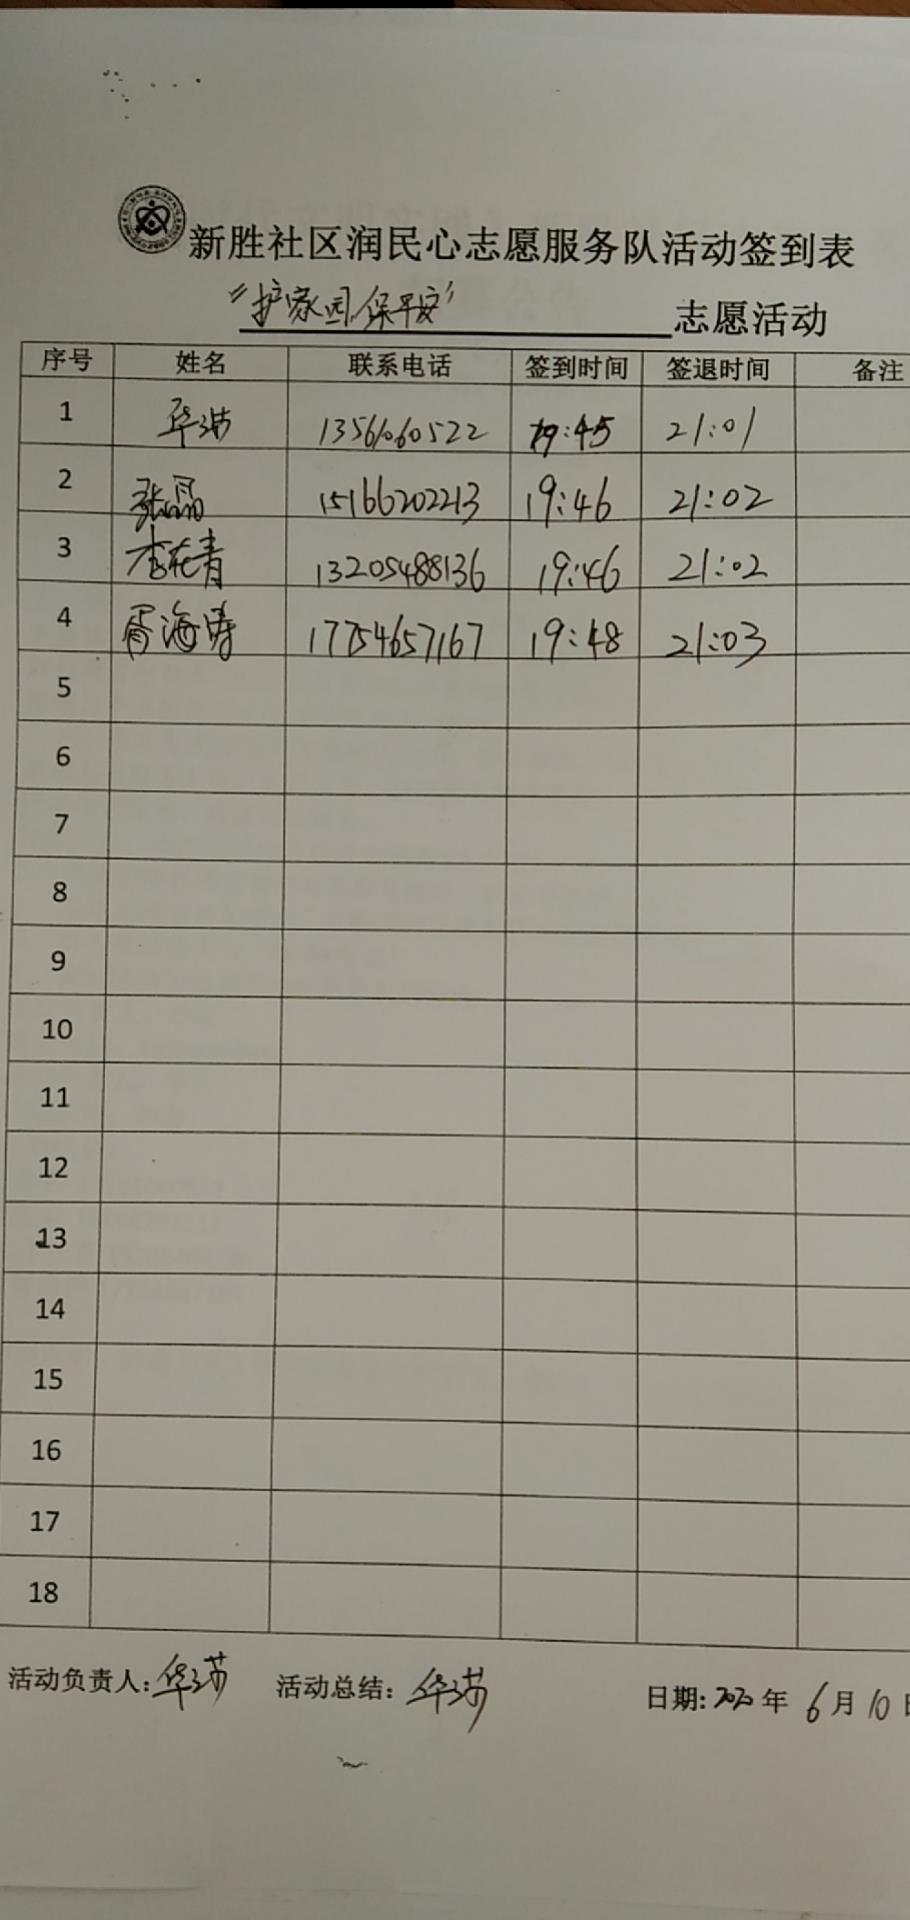 新胜社区润民心志愿服务队活动签到表
“护家园保平安” 志愿活动
序号 姓名 联系电话 签到时间 签退时间 备注
1 华 13561060522 19:45 21:01
2 张晶 15166202213 19:46 21:02
3 李花青 13205488136 19:46 21:02
4 胥海涛 17754657167 19:48 21:03
5
6
7
8
9
10
11
12
13
14
15
16
17
18
活动负责人: 华 活动总结: 华 日期: 2020 年 6 月 10 日